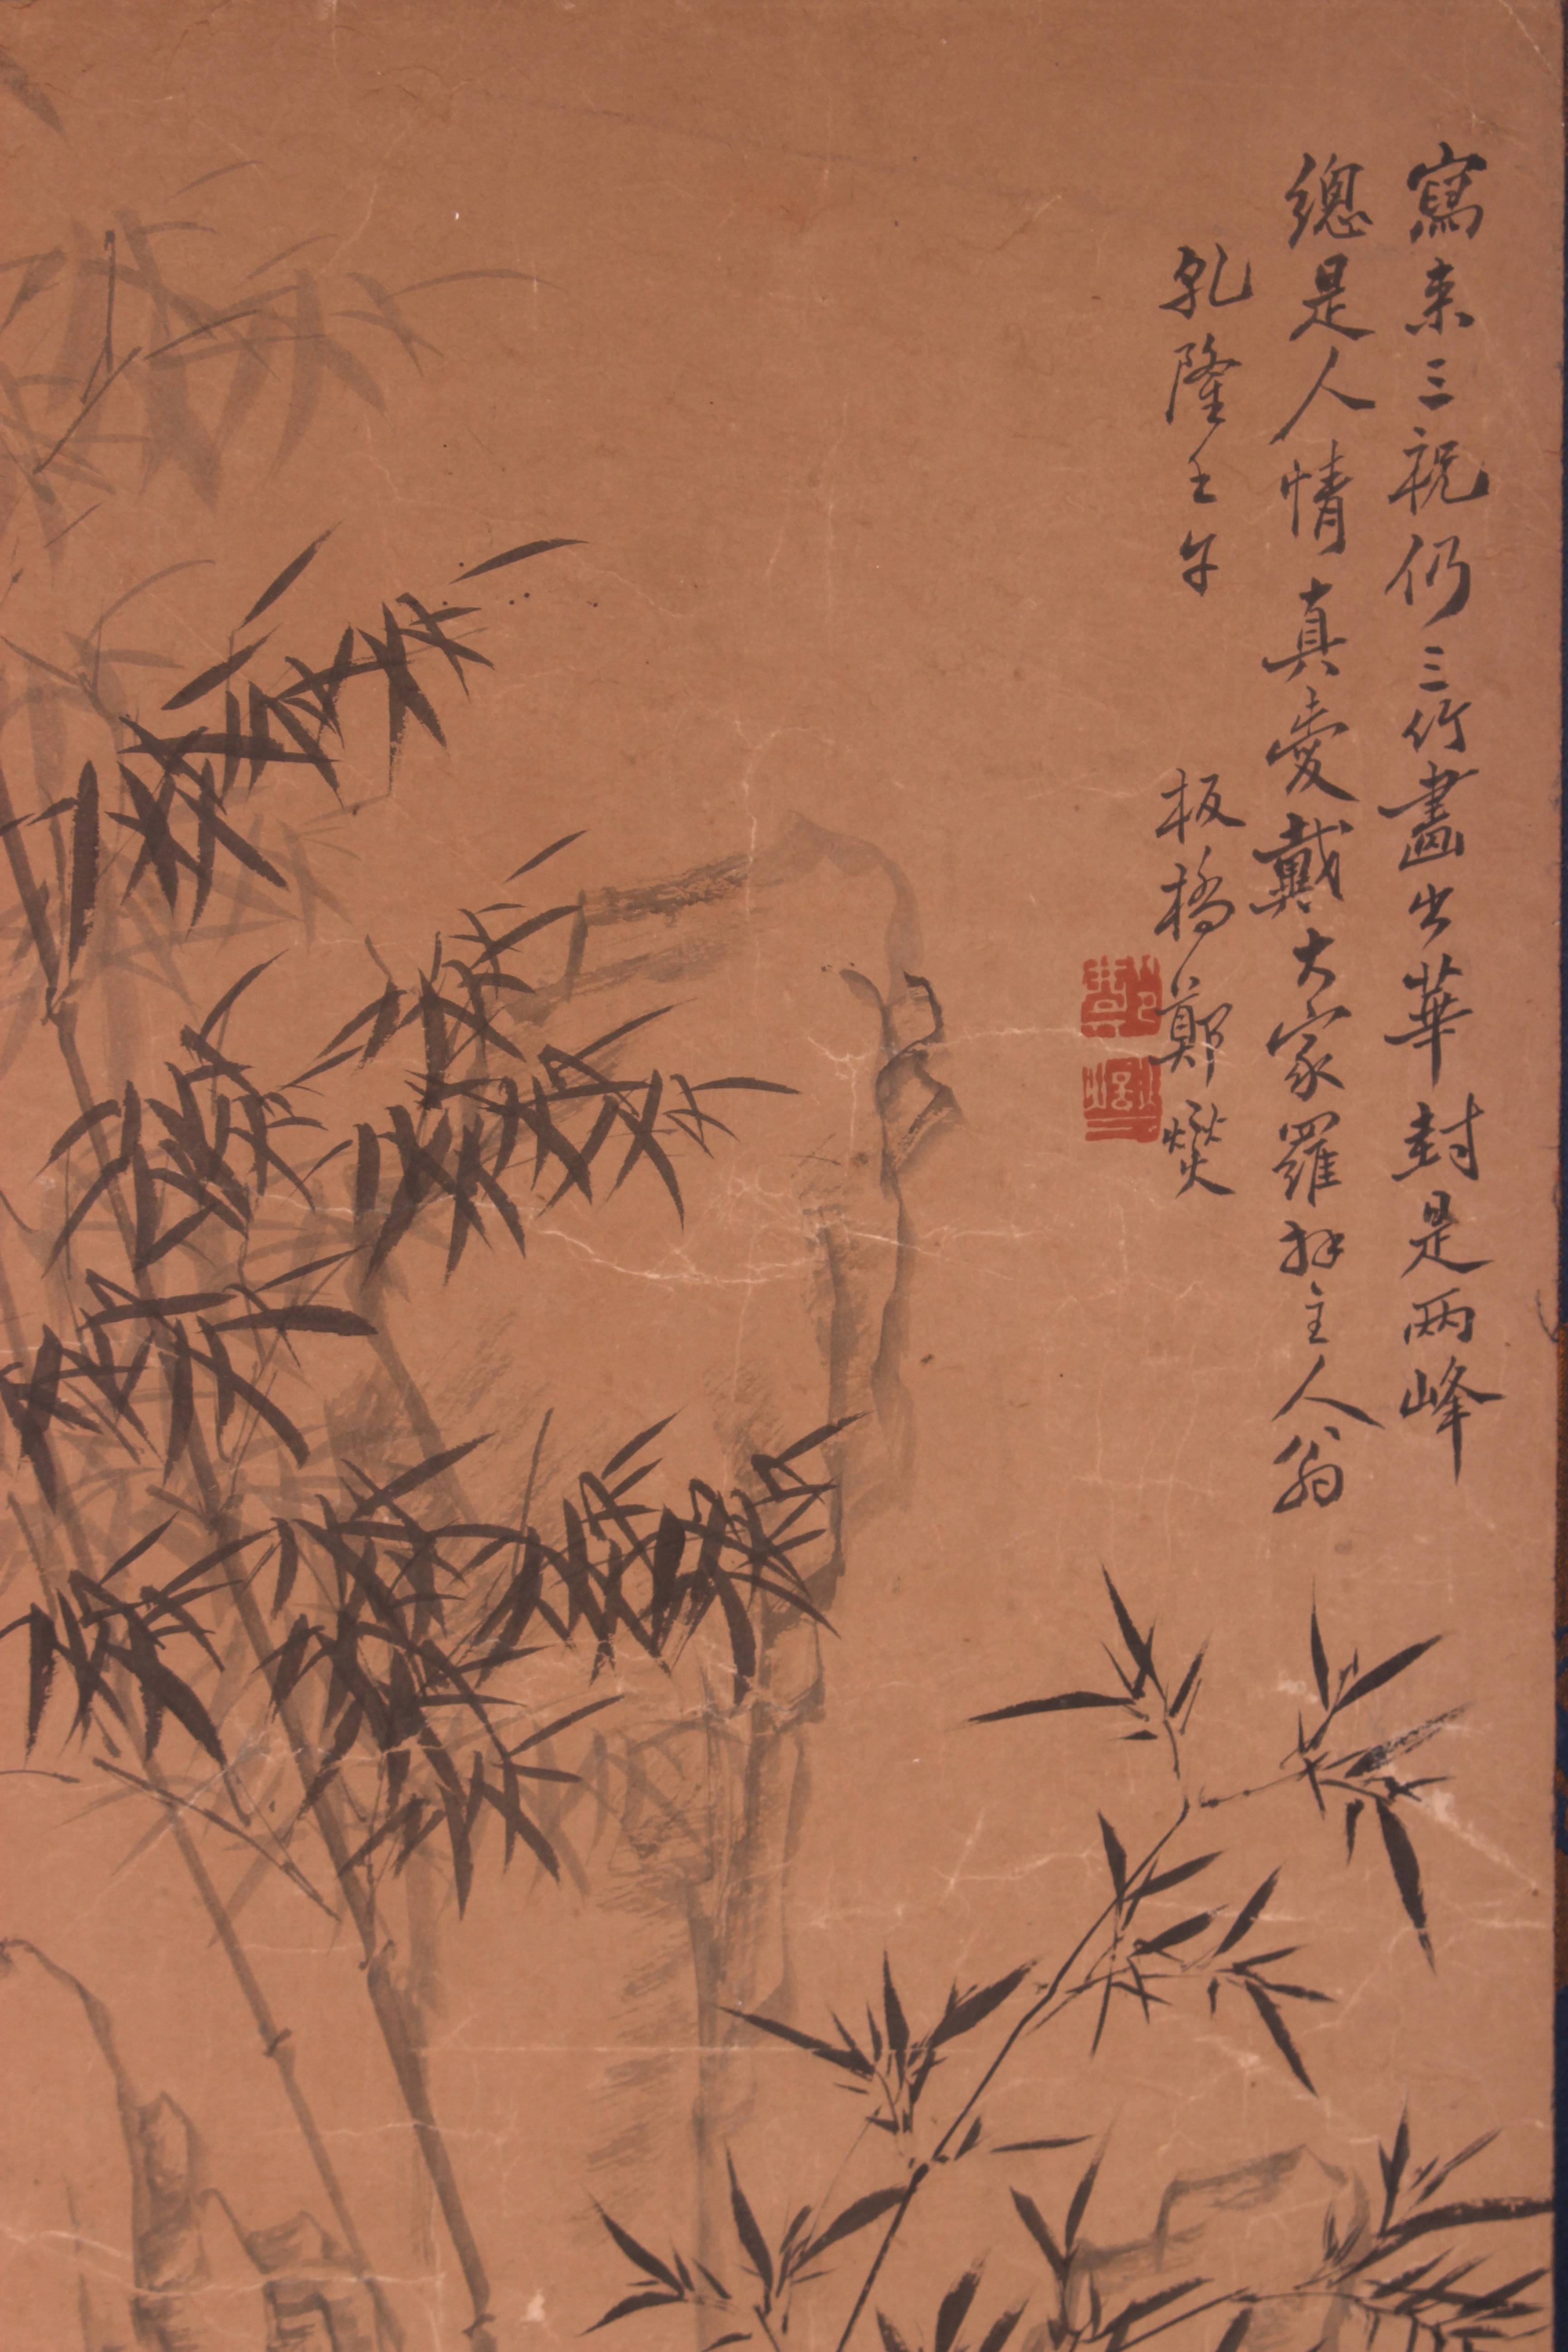 寫来三祝仍三竹畵出華封是兩峰
總是人情真愛戴大家羅拜主人翁
乾隆壬午
板橋鄭燮